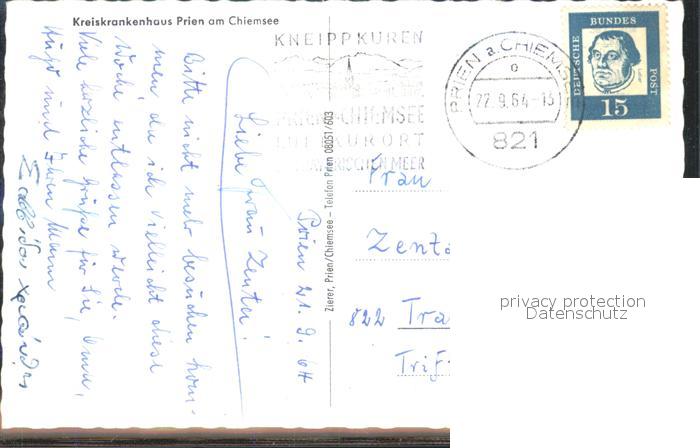 Kreiskrankenhaus Prien am Chiemsee
KNEIPPKUREN
PRIEN-CHIEMSEE
LUFTKURORT
BAYERISCHEN MEER
PRIEN a. CHIEMSEE
22.9.64-15
821
DEUTSCHE BUNDES POST
15
Prien 21.9.64
Liebe Frau Zenta!
Bitte nicht mehr besuchen kom-
men, da ich vielleicht diese
Woche entlassen werde.
Viele herzliche Grüße für Sie,
Hugo und Ihren Mann
Zierer, Prien/Chiemsee — Telefon Prien 08051/603
Frau
Zenta
822 Tra
Trif
privacy protection
Datenschutz